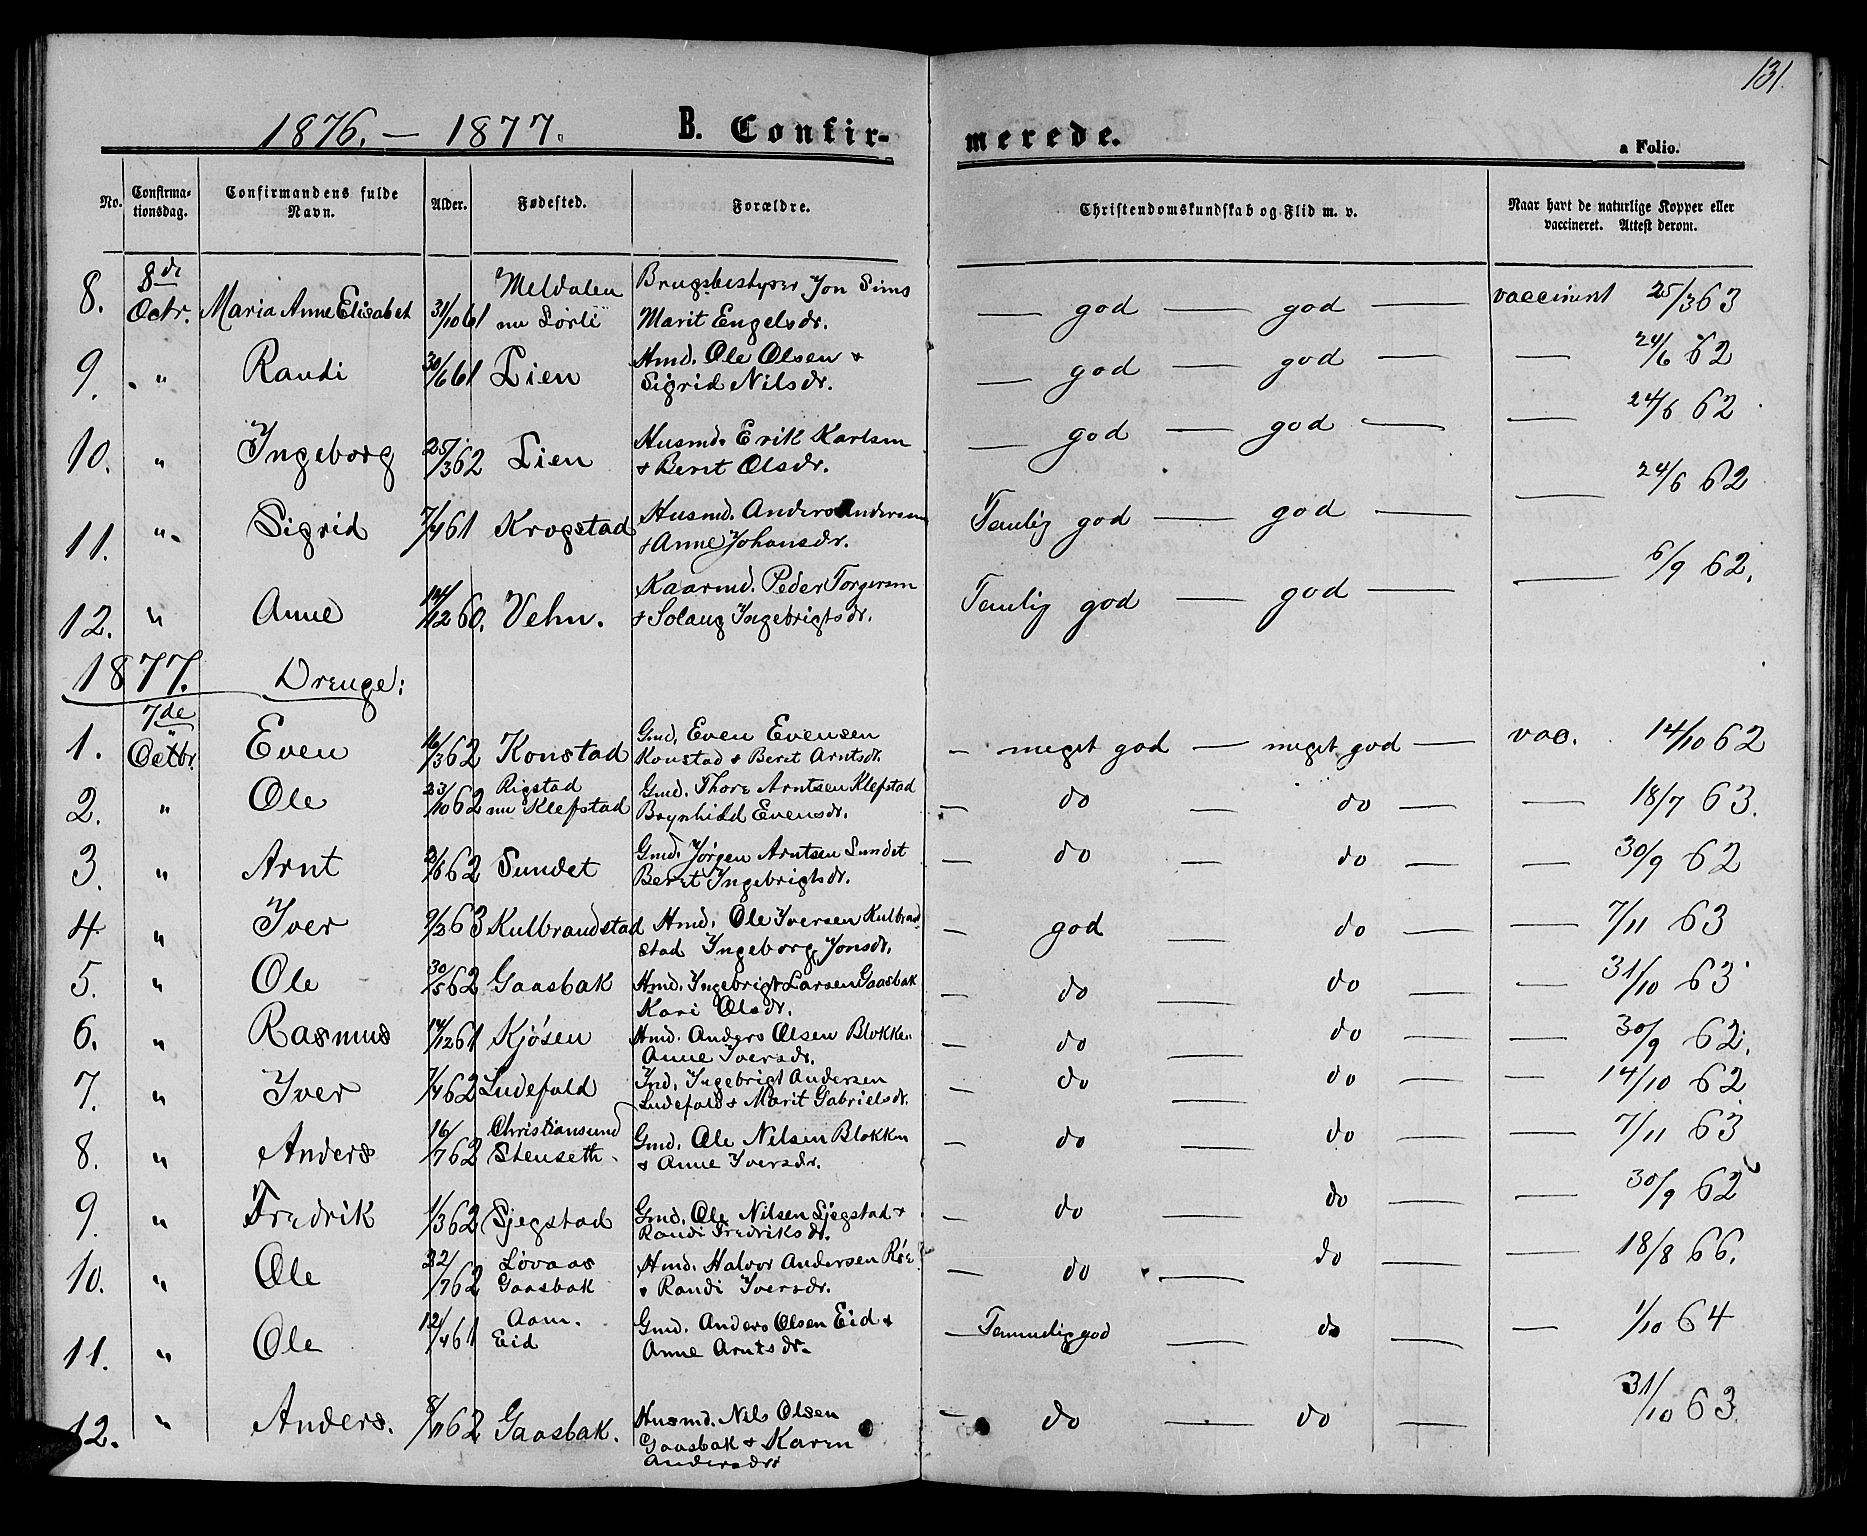 131.
1876. — 1877. B. Confirmerede. a Folio.
No. Confirmationsdag. Confirmandens fulde Navn. Alder. Fødested. Forældre. Christendomskundskab og Flid m. v. Naar havt de naturlige Kopper eller vaccineret. Attest derom.
8. 8de Octr. Maria Anne Elisabet 31/10 61 Meldalen nu Lørli Brugsbestyrer Jon Sims Marit Engelsdr. — god — god — vaccinert 25/3 63
9. " Randi 30/6 61 Lien Hmd. Ole Olsen + Sigrid Nilsdr. — god — god — — 24/6 62
10. " Ingeborg 25/3 62 Lien Husmd. Erik Karlsen + Beret Olsdr. — god — god — — 24/6 62
11. " Sigrid 7/4 61 Krogstad Husmd. Anders Andersen + Anne Johansdr. Temlig god — god — — 24/6 62
12. " Anne 14/12 60. Vehn. Kaarmd. Peder Torgersen + Solaug Ingebrigtsdr. Temlig god — god — — 6/9 62.
1877. Drenge:
1. 7de Octbr. Even 16/3 62 Konstad Gmd. Even Evensen Konstad + Beret Arntsdr. — meget god — meget god — vac. 14/10 62
2. " Ole 23/10 62 Rigstad nu Klefstad Gmd. Thore Arntsen Klefstad Brynhild Evensdr. — do — do — — 18/7 63.
3. " Arnt 2/6 62 Sundet Gmd. Jørgen Arntsen Sundet Beret Ingebrigtsdr. — do — do — — 30/9 62
4. " Iver 9/2 63 Kulbrandstad Hmd. Ole Iversen Kulbrandstad Ingeborg Jonsdr. — god — do — — 7/11 63
5. " Ole 30/5 62 Gaasbak Hmd. Ingebrigt Larsen Gaasbak Kari Olsdr. — do — do — — 31/10 63
6. " Rasmus 14/12 61 Kjøsen Hmd. Anders Olsen Blokken Anne Iversdr. — do — do — — 30/9 62.
7. " Iver 7/4 62 Ludefald Ind. Ingebrigt Andersen Ludefald + Marit Gabrielsdr. — do — do — — 14/10 62
8. " Anders 16/7 62 Christiansund Stenseth Gmd. Ole Nilsen Blokken + Anne Iversdr. — do — do — — 7/11 63
9. " Fredrik 1/3 62 Sjegstad Gmd. Ole Nilsen Sjegstad + Randi Fredriksdr. — do — do — — 30/9 62
10. " Ole 22/7 62 Løvaas Gaasbak Hmd. Halvor Andersen Røe + Randi Iversdr. — do — do — — 18/8 66.
11. " Ole 12/4 61 Aam. Eid Gmd. Anders Olsen Eid + Anne Arntsdr. — Temmelig god — do — — 1/10 64
12. " Anders. 8/11 62 Gaasbak. Husmd. Nils Olsen Gaasbak + Karen Andersdr. — do — do — 31/10 63